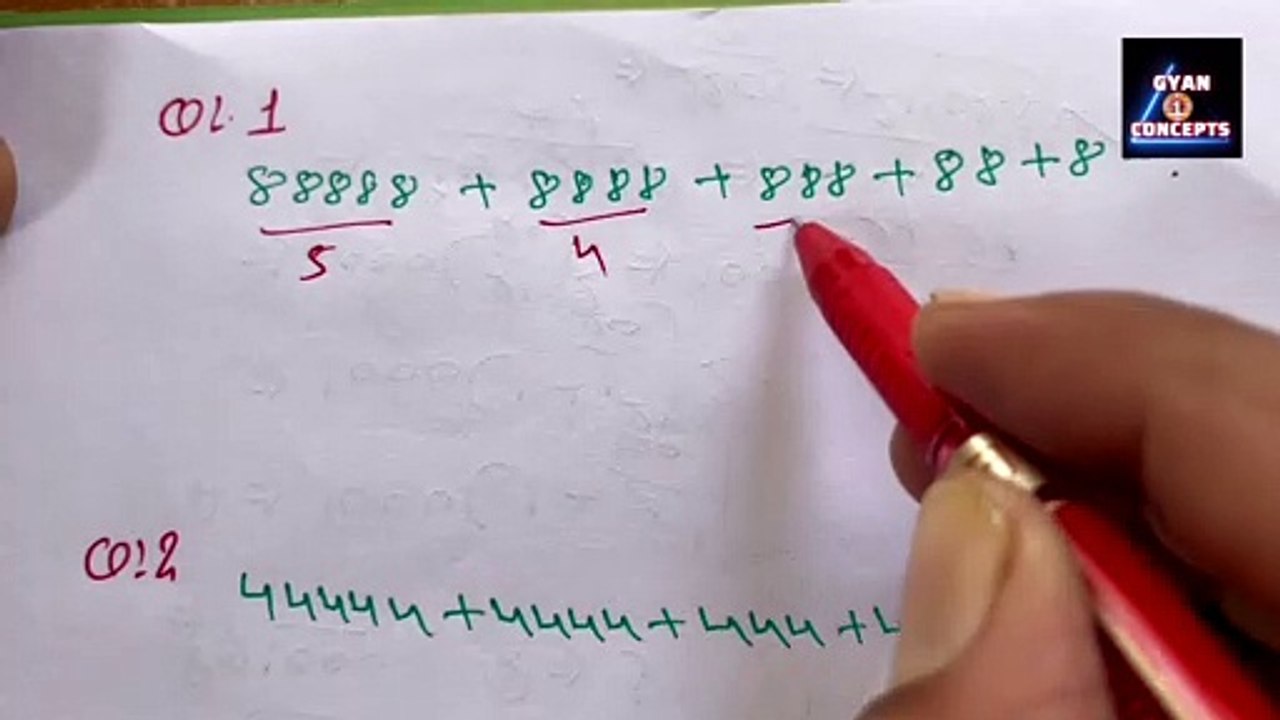 Q.1
88888 + 8888 + 888 + 88 + 8
5 4
Q.2
44444 + 4444 + 444 + 4
GYAN
CONCEPTS